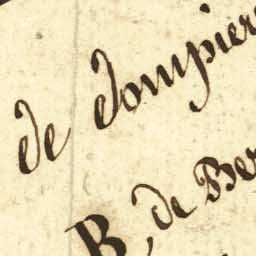 de dompier
B, de Ber